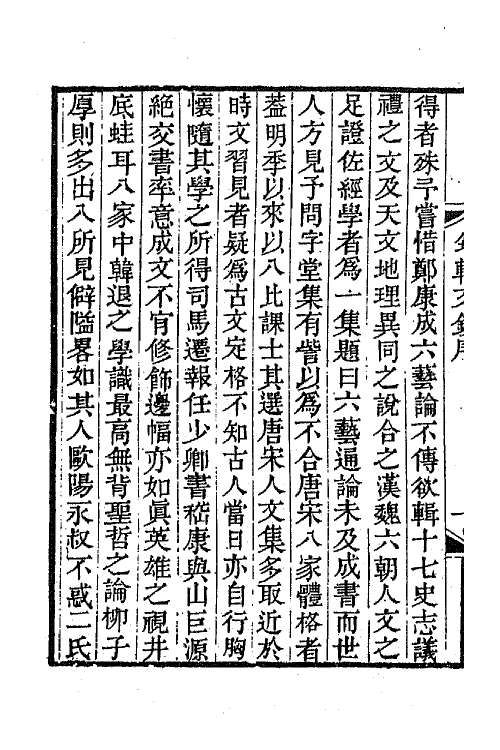 得者殊予嘗惜鄭康成六藝論不傳欲輯十七史志議
禮之文及天文地理異同之說合之漢魏六朝人文之
足證佐經學者爲一集題曰六藝通論未及成書而世
人方見予問字堂集有訾以爲不合唐宋八家體格者
葢明季以來以八比課士其選唐宋人文集多取近於
時文習見者疑爲古文定格不知古人當日亦自行胸
懷隨其學之所得司馬遷報任少卿書嵇康與山巨源
絶交書率意成文不肎修飾邊幅亦如眞英雄之視井
底蛙耳八家中韓退之學識最高無背聖哲之論柳子
厚則多出入所見僻隘畧如其人歐陽永叔不惑二氏